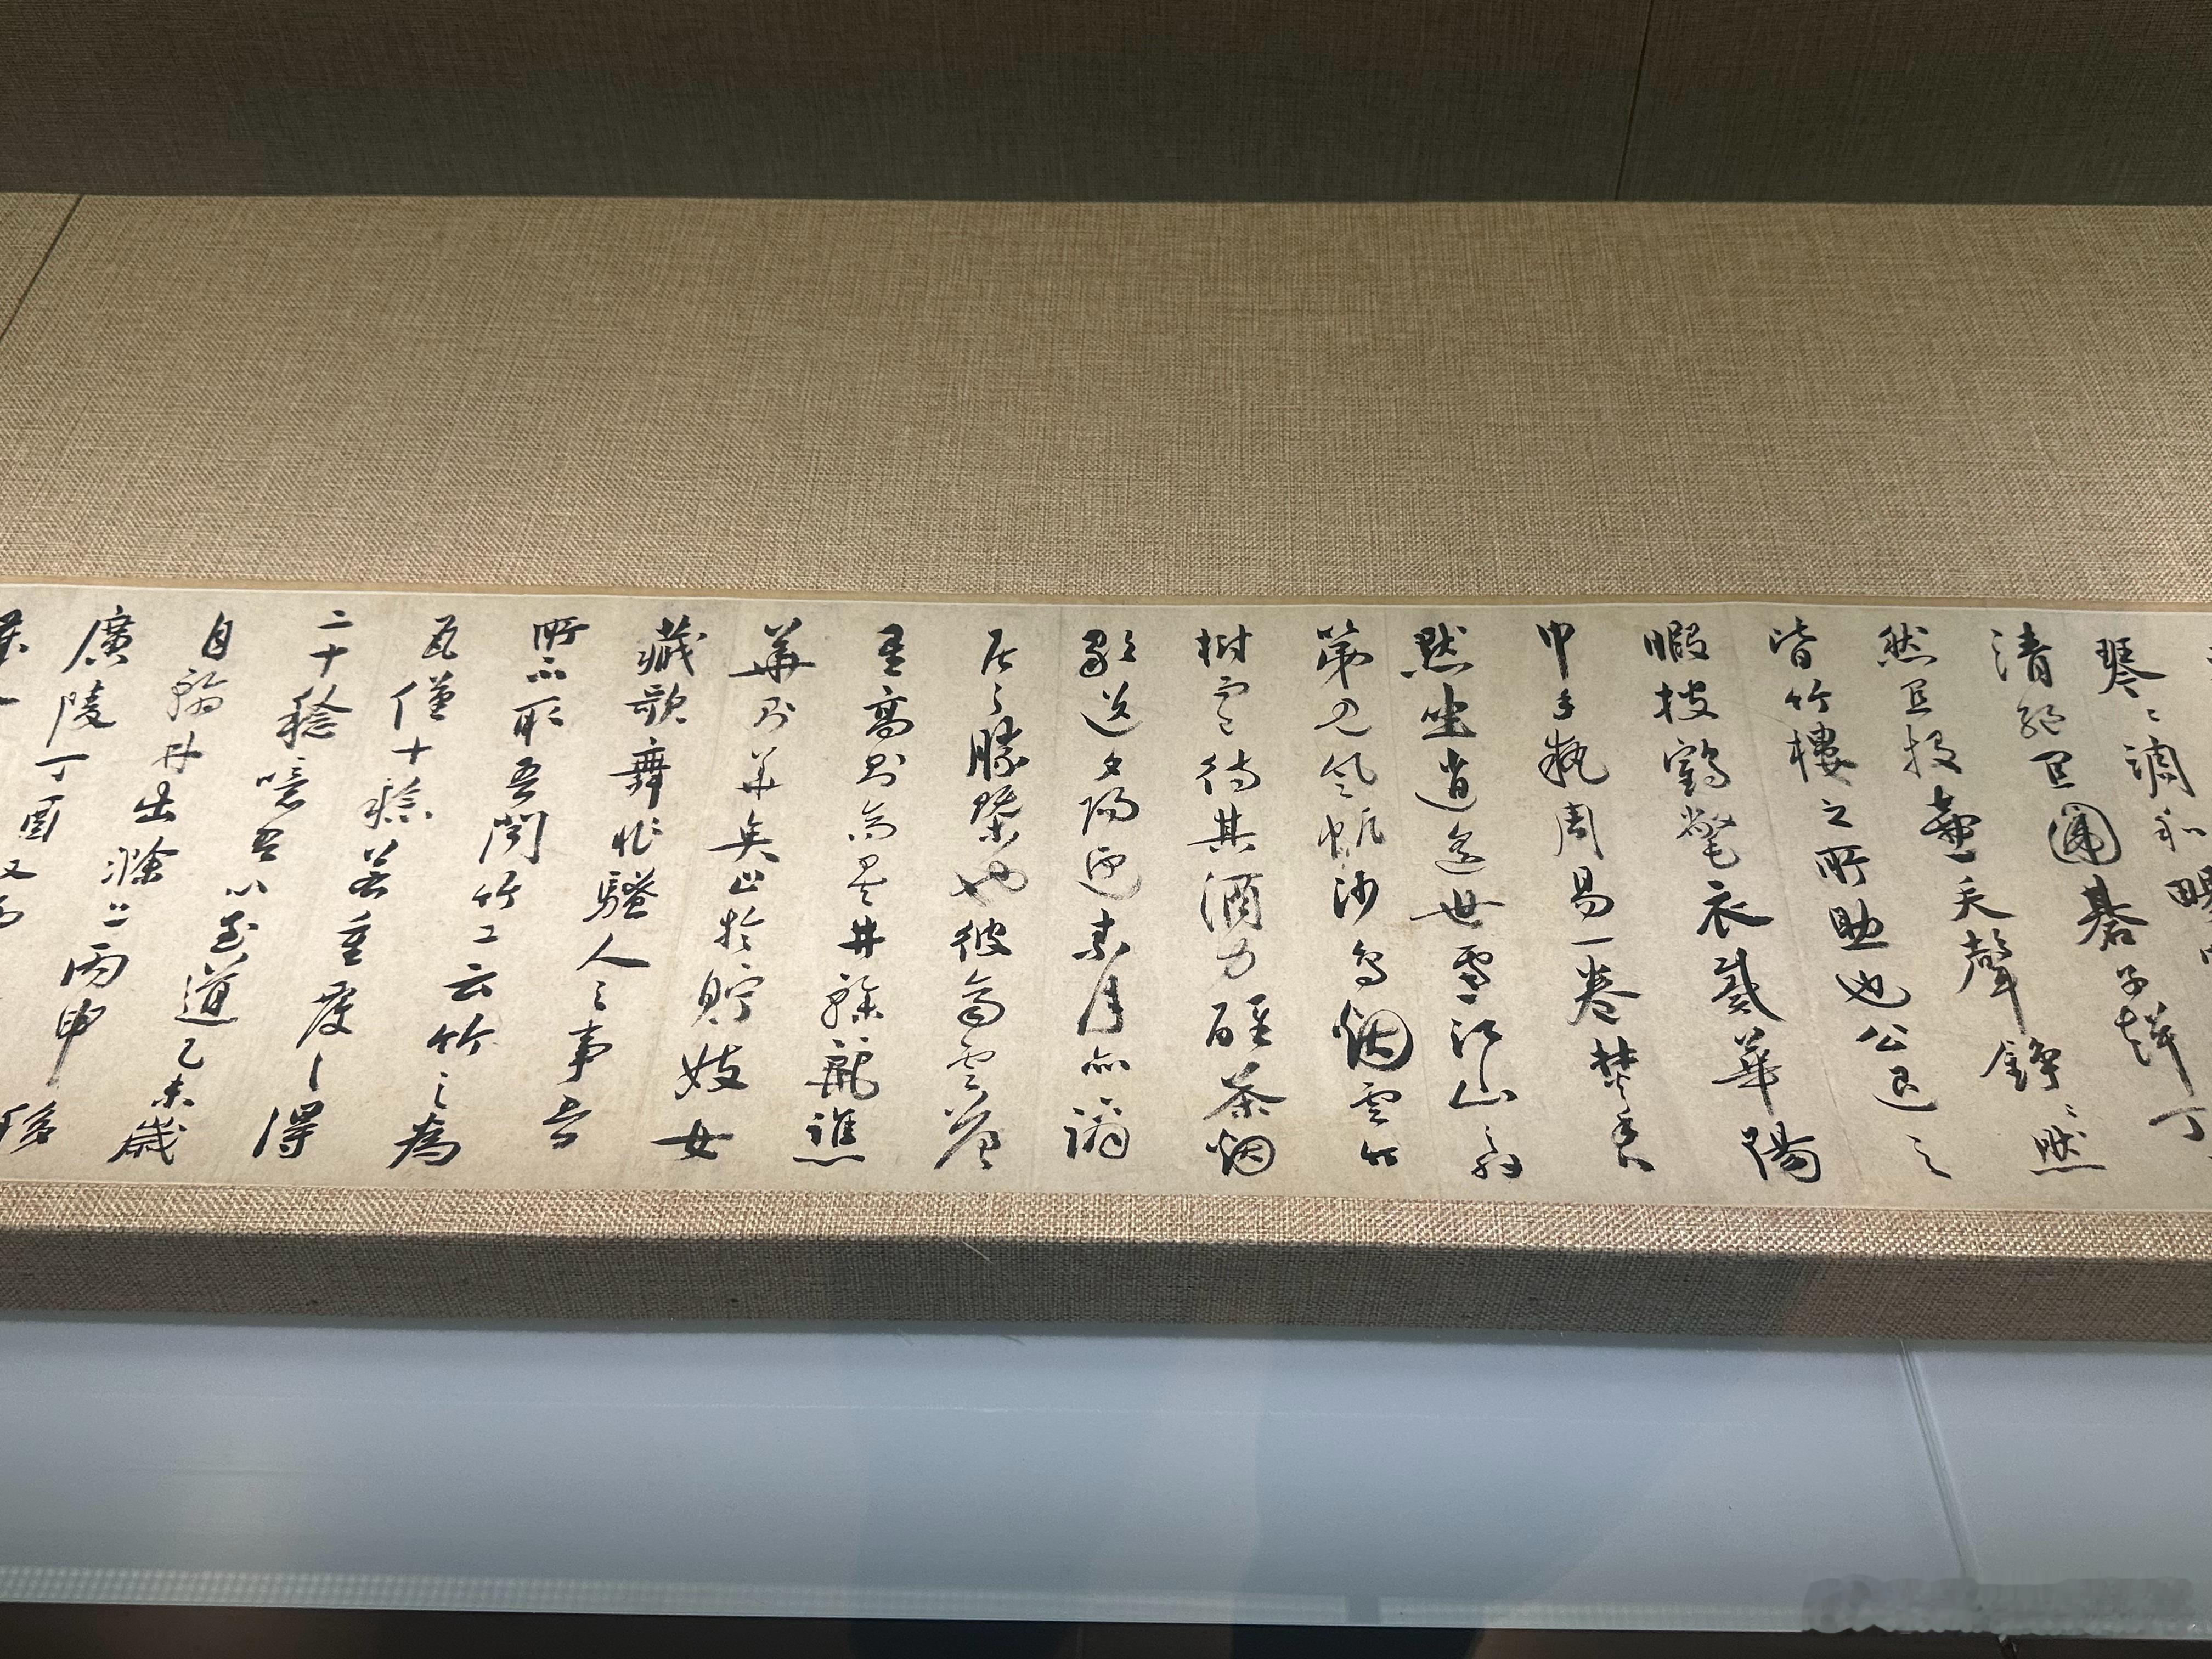 琴〻調和暢
清絕宜圍碁子聲丁
然宜投壺矢聲錚〻然
皆竹樓之所助也公退之
暇披鶴氅衣戴華陽
巾手執周易一卷焚香
默坐消遣世慮江山之外
第見風帆沙鳥烟雲竹
樹而已待其酒力醒茶烟
歇送夕陽迎素月亦謫
居之勝槩也彼齊雲落
星高則高矣井幹麗譙
華則華矣止於貯妓女
藏歌舞非騷人之事吾
所不取吾聞竹工云竹之為
瓦僅十稔若重覆之得
二十稔噫吾以至道乙未歲
自翰林出滁上丙申移
廣陵丁酉又